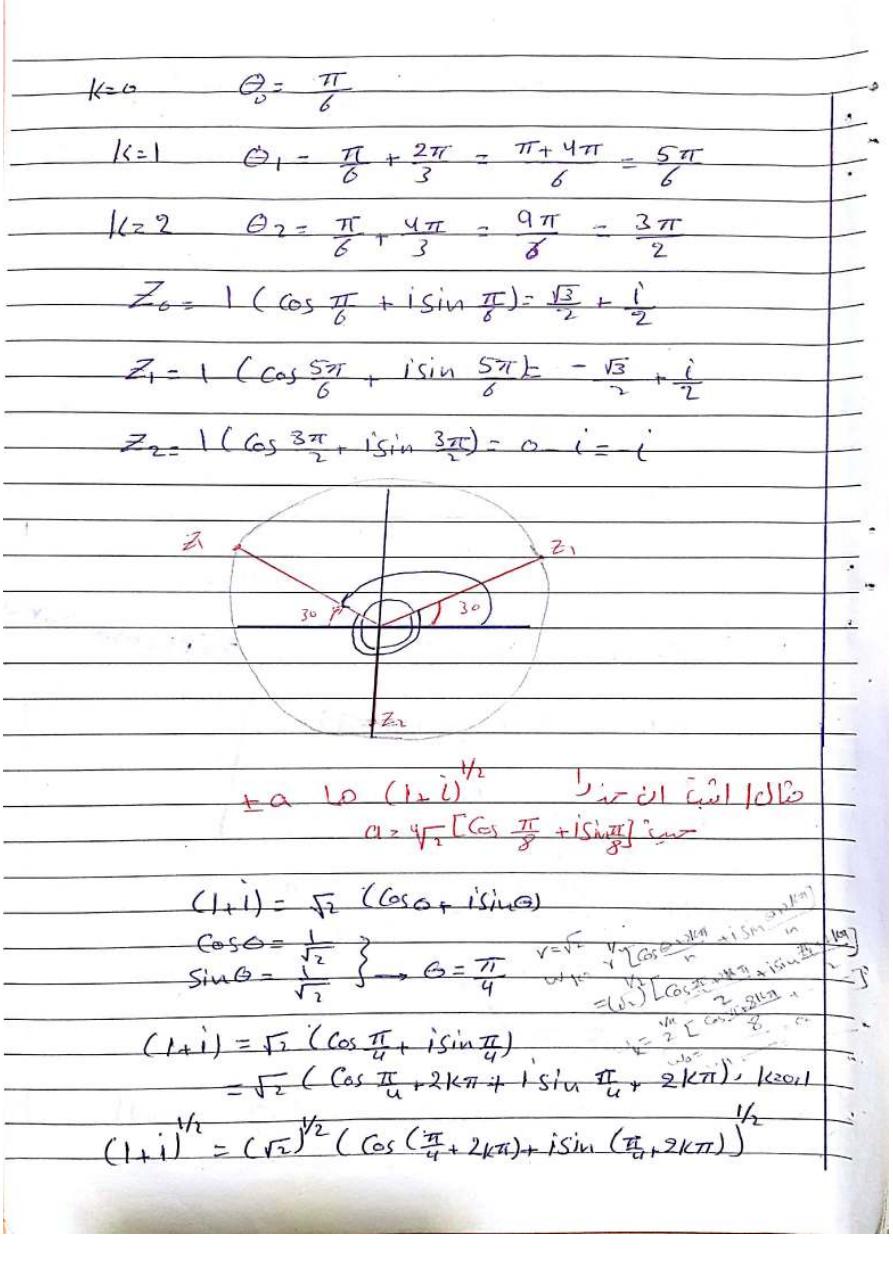 K=0 θ₀ = π/6
K=1 θ₁ = π/6 + 2π/3 = π+4π/6 = 5π/6
K=2 θ₂ = π/6 + 4π/3 = 9π/6 = 3π/2
Z₀ = 1 (cos π/6 + i sin π/6) = √3/2 + i/2
Z₁ = 1 (cos 5π/6 + i sin 5π/6) = - √3/2 + i/2
Z₂ = 1 (cos 3π/2 + i sin 3π/2) = 0 - i = -i
Z₁ Z₁
30 30
Z₂
مثال/ اثبت ان جذرا (1+i)^1/2 هما ±a
حيث a = ⁴√2 [cos π/8 + i sin π/8]
(1+i) = √2 (cosθ + i sinθ)
cosθ = 1/√2
sinθ = 1/√2 } → θ = π/4
r=√2 r^1/n [cos θ+2kπ/n + i sin θ+2kπ/n]
=(√2)^1/2 [cos
(1+i) = √2 (cos π/4 + i sin π/4)
= √2 (cos π/4 + 2kπ + i sin π/4 + 2kπ), k=0,1
(1+i)^1/2 = (√2)^1/2 (cos (π/4 + 2kπ) + i sin (π/4 + 2kπ))^1/2